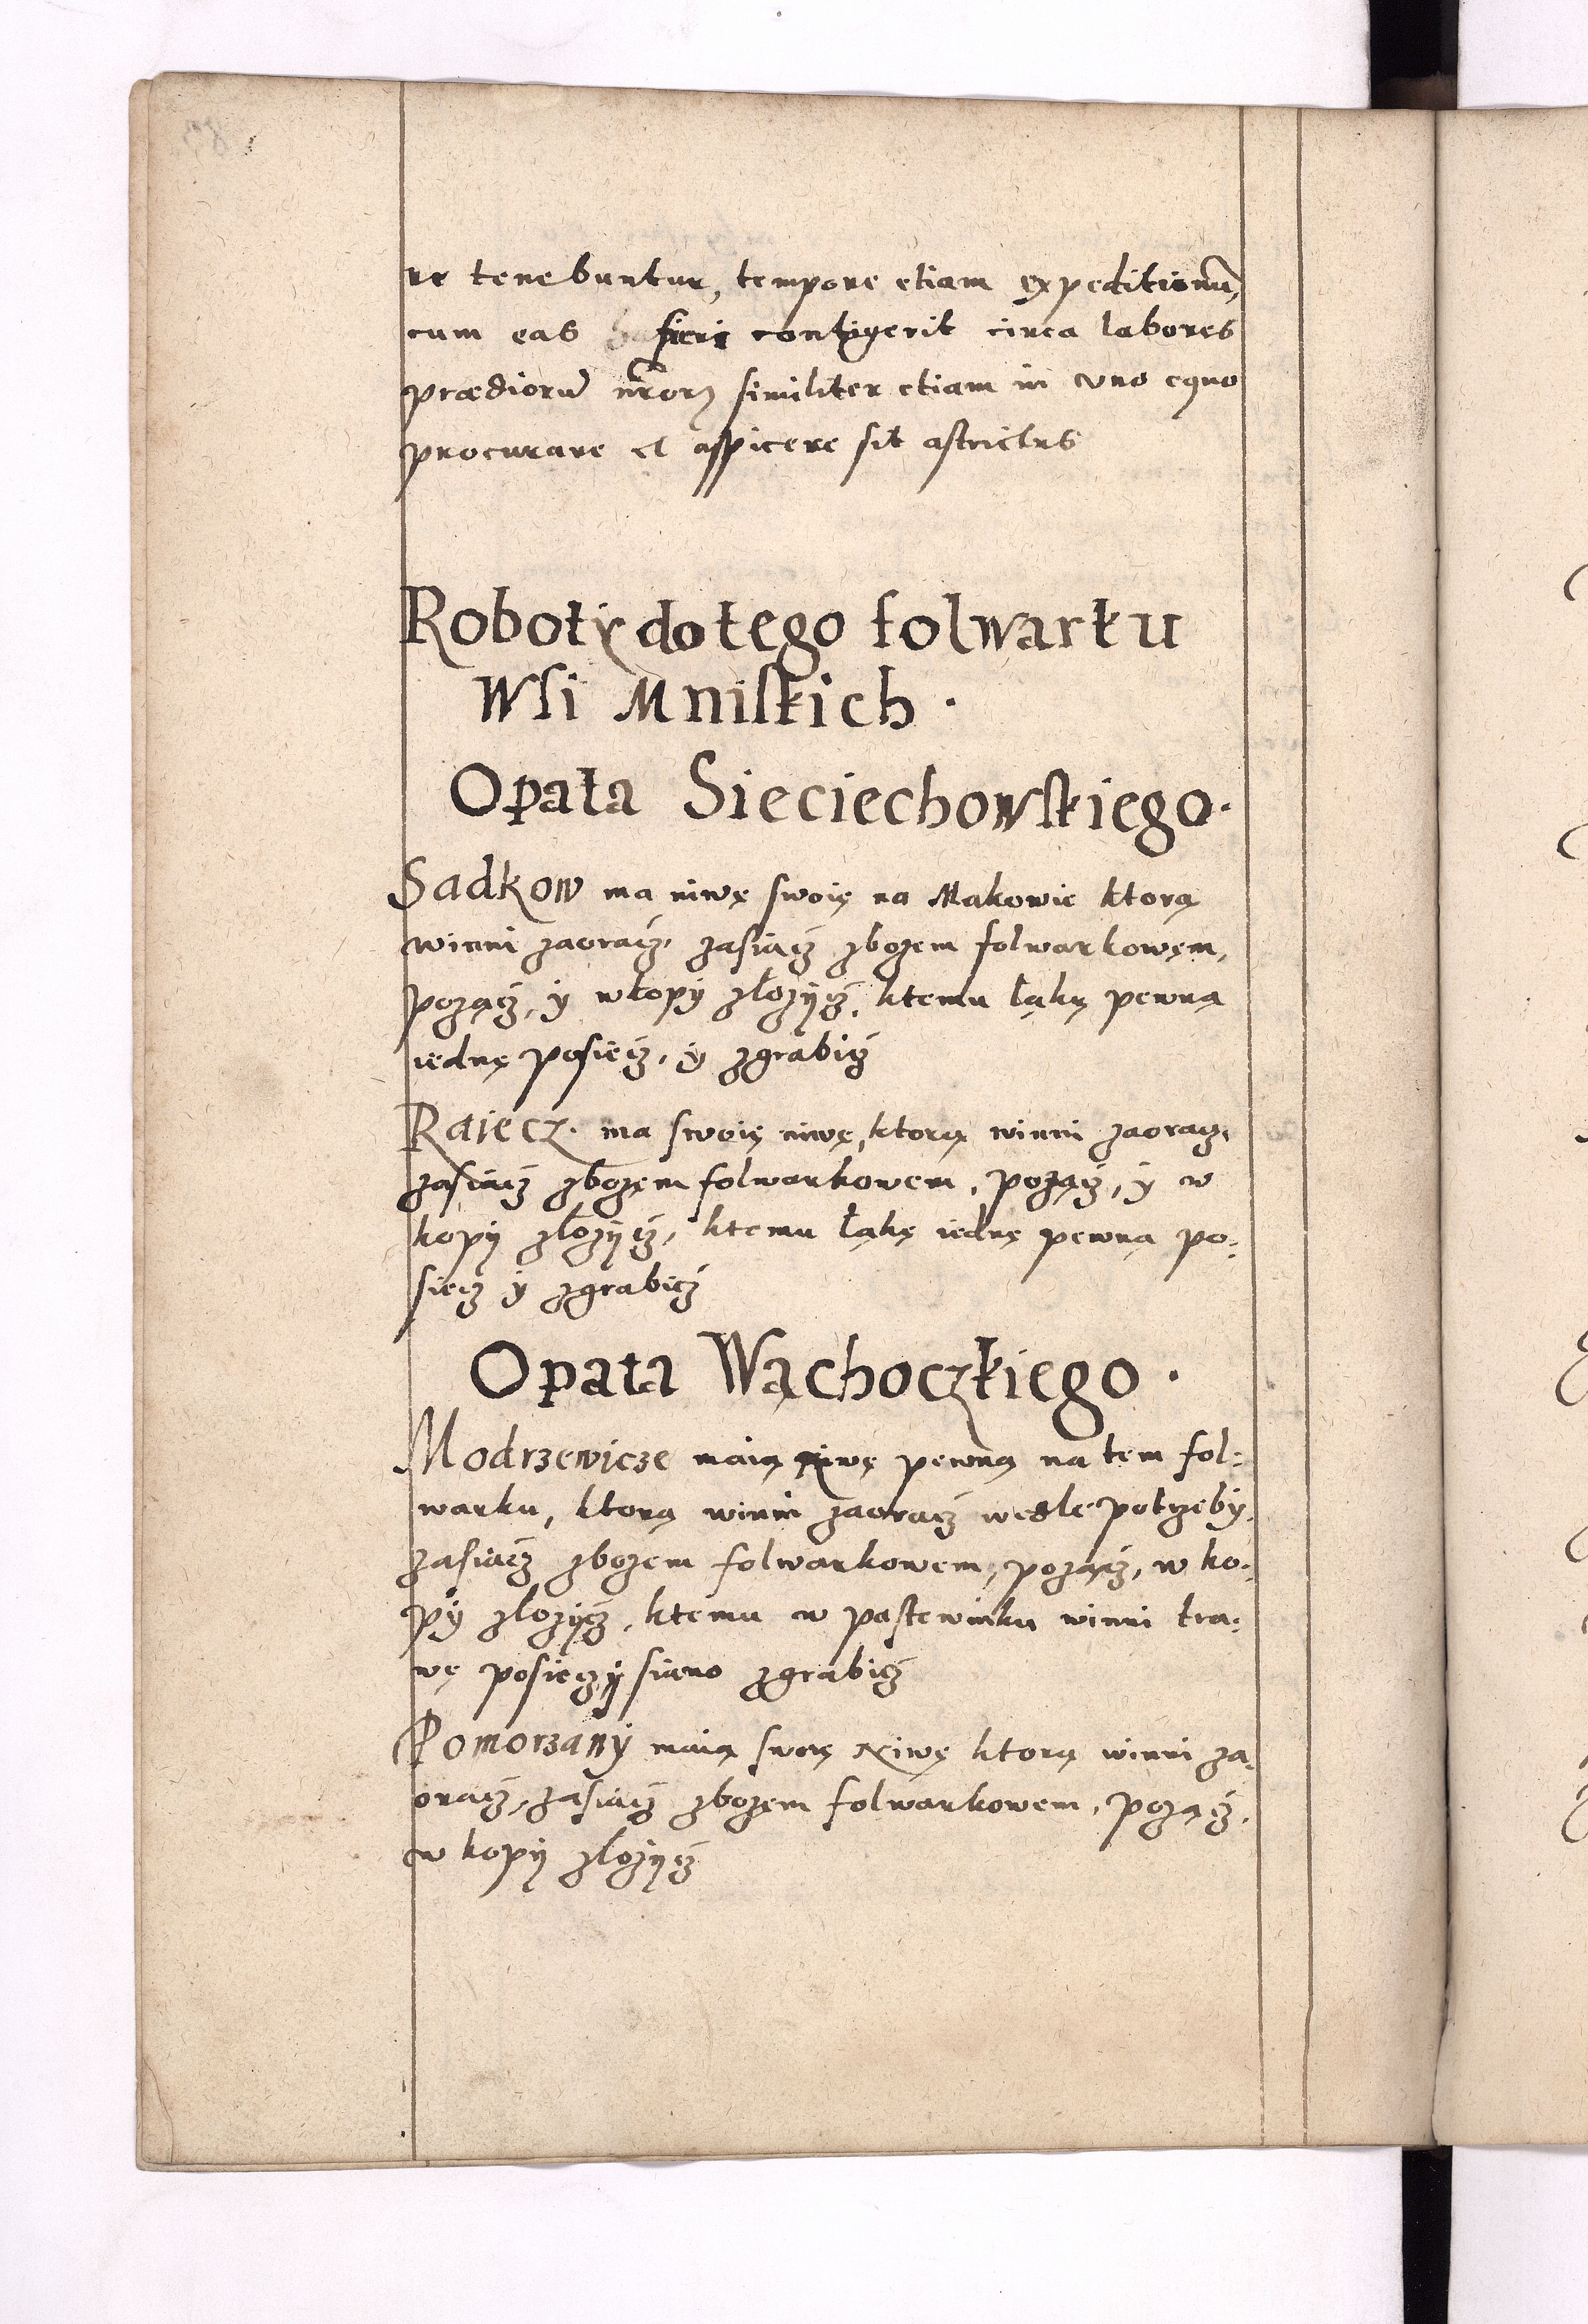 re tenebuntur, tempore etiam expeditionu,
cum eas fieri contigerit circa labores
prædioru nrorz similiter etiam in uno equo
procurare et aspicere sit astrictus
Roboty do tego folwarku
Wsi Mniskich.
Opata Sieciechowskiego.
Sadkow ma niwę swoię na Makowie ktorą
winni zaoracz, zasiacz zbozem folwarkowęm,
pozącz, y wkopy złozycz, ktemu łąkę pewną
iednę posiecz, y zgrabicz
Raiecz. ma swoię niwę, ktorą winni zaoracz,
zasiacz zbozęm folwarkowem, pozącz, y w
kopy złozycz, ktemu łąkę iednę pewną po-
siecz y zgrabicz
Opata Wąchoczkiego.
Modrzewicze maią niwę pewną na tem fol-
warku, ktorą winni zaoracz wedle potrzeby,
zasiacz zbozem folwarkowem, pozącz, w ko-
py złozycz, ktemu w pastewniku winni tra-
wę posiecz y siano zgrabicz
Pomorzany maią swoię niwę ktorą winni za-
oracz, zasiacz zbozęm folwarkowem, pozącz,
w kopy złozycz